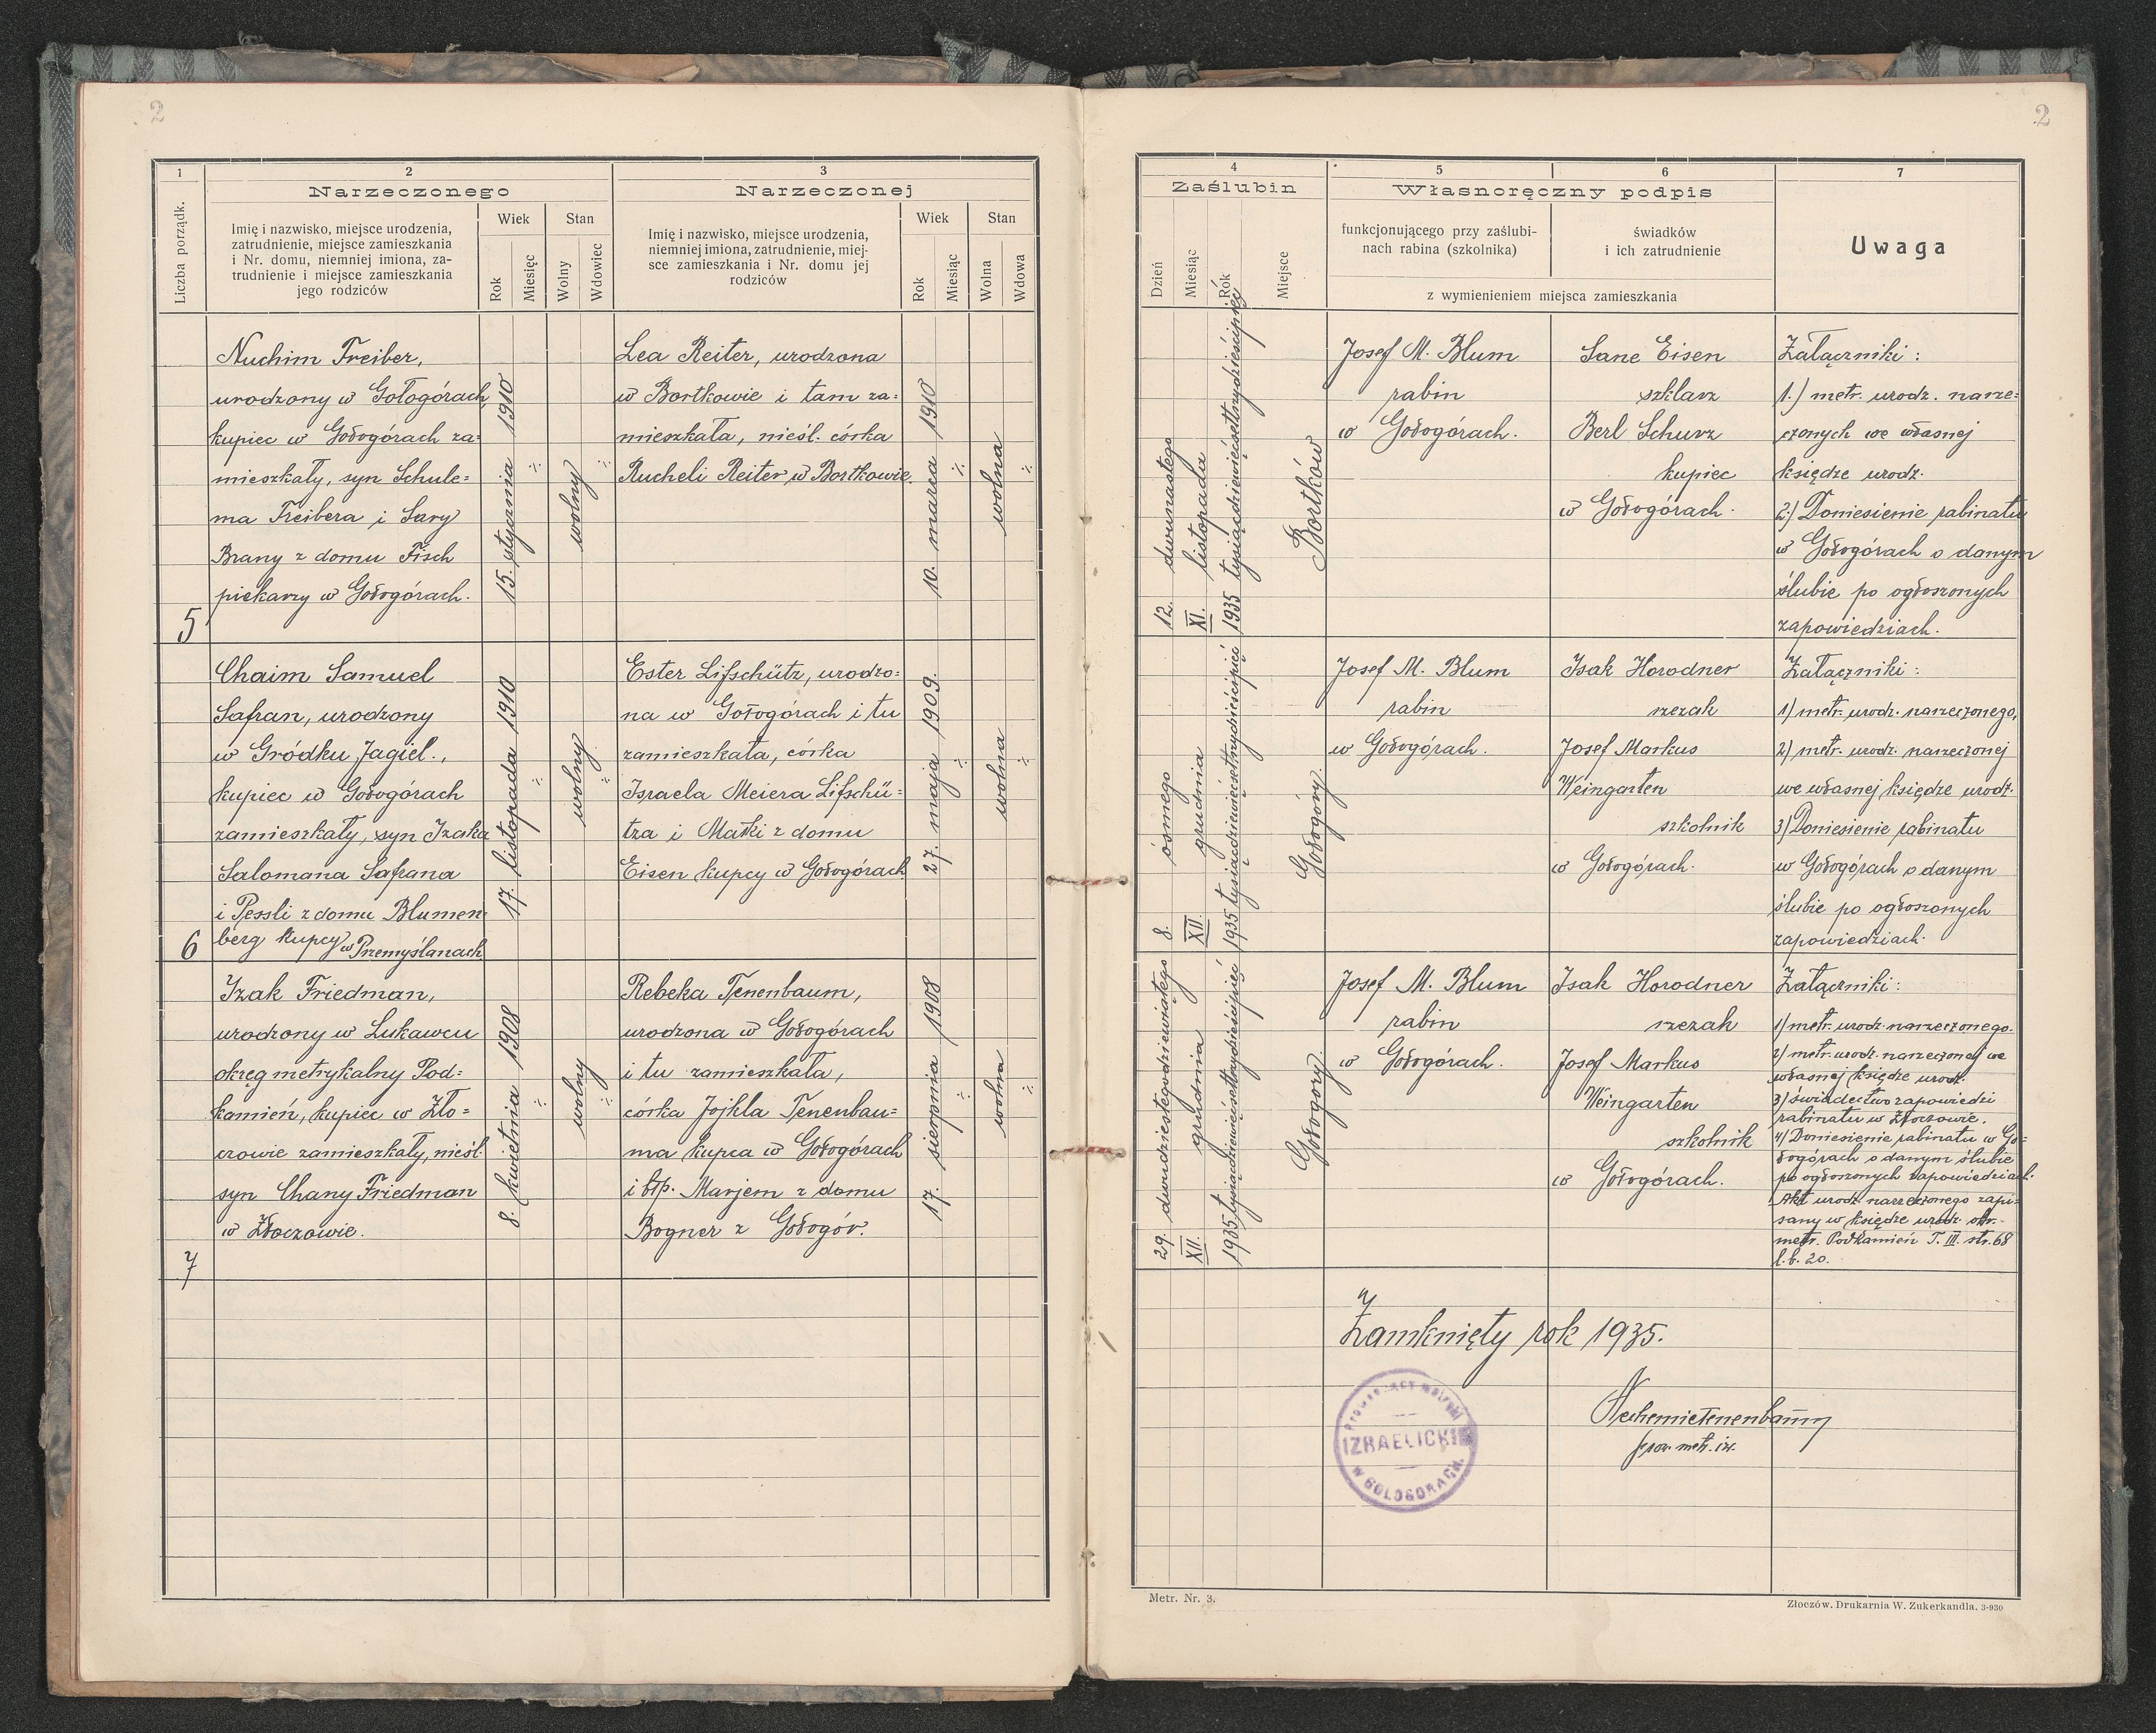 2
1
2
3
Narzeczonego
Narzeczonej
Liczba porządk.
Imię i nazwisko, miejsce urodzenia,
zatrudnienie, miejsce zamieszkania
i Nr. domu, niemniej imiona, za-
trudnienie i miejsce zamieszkania
jego rodziców
Wiek
Rok
Miesięc
Stan
Wolny
Wdowiec
Imię i nazwisko, miejsce urodzenia,
niemniej imiona, zatrudnienie, miej-
sce zamieszkania i Nr. domu jej
rodziców
Wiek
Rok
Miesiąc
Stan
Wolna
Wdowa
5
Nuchim Treiber,
urodzony w Gołogórach,
kupiec w Gołogórach za=
mieszkały, syn Schule=
ma Treibera i Sary
Brany z domu Fisch
piekarzy w Gołogórach.
15. stycznia 1910
wolny
Lea Reiter, urodzona
w Bortkowie i tam za=
mieszkała, nieśl. córka
Rucheli Reiter w Bortkowie.
10. marca 1910
wolna
6
Chaim Samuel
Safran, urodzony
w Gródku Jagiel.,
kupiec w Gołogórach
zamieszkały, syn Izaka
Salomana Safrana
i Pessli z domu Blumen
berg kupcy w Przemyślanach
17. listopada 1910
wolny
Ester Lifschütz, urodzo=
na w Gołogórach i tu
zamieszkała, córka
Israela Meiera Lifschü=
tza i Matki z domu
Eisen kupcy w Gołogórach
27. maja 1909.
wolna
7
Izak Friedman,
urodzony w Lukawcu
okręg metrykalny Pod=
kamień, kupiec w Zło=
czowie zamieszkały, nieśl.
syn Chany Friedman
w Złoczowie.
8. kwietnia 1908
wolny
Rebeka Tenenbaum,
urodzona w Gołogórach
i tu zamieszkała,
córka Jojkla Tenenbau=
ma kupca w Gołogórach
i btp. Marjem z domu
Bogner z Gołogór.
17. sierpnia 1908
wolna
2
4
5
6
7
Zaślubin
Własnoręczny podpis
Uwaga
Dzień
Miesiąc
Rok
Miejsce
funkcjonującego przy zaślubi-
nach rabina (szkolnika)
świadków
i ich zatrudnienie
z wymienieniem miejsca zamieszkania
12. dwunastego
XI. listopada
1935 tysiącdziewięćsettrzydzieścipięć
Bortków
Josef M. Blum
rabin
w Gołogórach.
Sane Eisen
szklarz
Berl Schurz
kupiec
w Gołogórach.
Załączniki:
1.) metr. urodz. narze=
czonych we własnej
księdze urodz.
2.) Doniesienie rabinatu
w Gołogórach o danym
ślubie po ogłoszonych
zapowiedziach.
8. ósmego
XII. grudnia
1935 tysiącdziewięćsettrzydzieścipięć
Gołogóry.
Josef M. Blum
rabin
w Gołogórach.
Isak Horodner
rzezak
Josef Markus
Weingarten
szkolnik
w Gołogórach.
Załączniki:
1) metr. urodz. narzeczonego,
2) metr. urodz. narzeczonej
we własnej księdze urodz.
3) Doniesienie rabinatu
w Gołogórach o danym
ślubie po ogłoszonych
zapowiedziach.
29. dwudziestegodziewiątego
XII. grudnia
1935 tysiącdziewięćsettrzydzieścipięć
Gołogory.
Josef M. Blum
rabin
w Gołogórach.
Isak Horodner
rzezak
Josef Markus
Weingarten
szkolnik
w Gołogórach.
Załączniki:
1) metr. urodz. narzeczonego.
2) metr. urodz. narzeczonej we
własnej księdze urodz.
3) świadectwo zapowiedzi
rabinatu w Złoczowie.
4) Doniesienie rabinatu w Go=
łogórach o danym ślubie
po ogłoszonych zapowiedziach.
Akt urodz. narzeczonego zapi=
sany w księdze urodz. okr.
metr. Podkamień T. III. str. 68
l.b. 20.
Zamknięty rok 1935.
IZRAELICKIE
W GOLOGORACH.
Nechemie Tenenbaum
prow. metr. izr.
Metr. Nr. 3.
Złoczów. Drukarnia W. Zukerkandla. 3-930